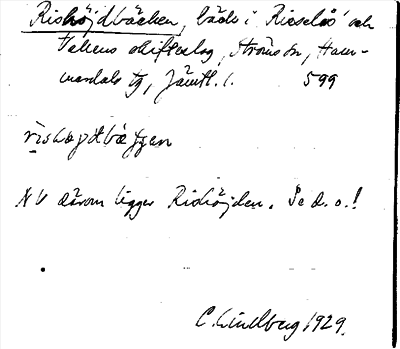 Rishöjdbäcken, bäck i Rieselås' och
skifteslag, Ströms sn, Ham-
merdals tg, Jämtl. l. 599
rishøjdbækken
NV därom ligger Rishöjden. Se d. o.!
C. Lindberg 1929.